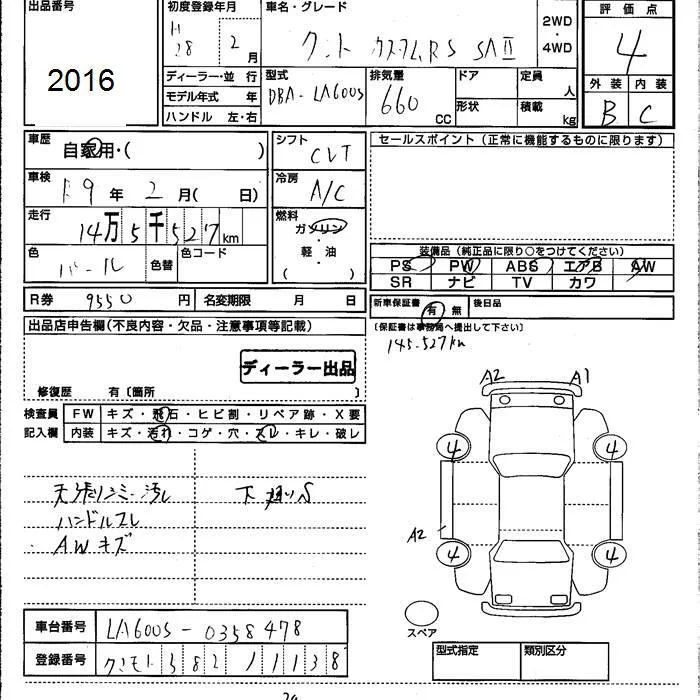 出品番号
2016
初度登録年月
H 28 2 月
車名・グレード
タント カスタムRS SAⅡ
2WD
・
4WD
評価点
4
外装 内装
B C
ディーラー・並行
モデル年式 年
ハンドル 左・右
型式
DBA-LA600S
排気量
660 CC
ドア
形状
定員 人
積載 kg
車歴
自家用・( )
シフト
CVT
セールスポイント(正常に機能するものに限ります)
車検
R9年 2月( 日)
冷房
A/C
走行
14万5千527km
燃料
ガソリン
軽・油
( )
色
パール
色替
色コード
装備品(純正品に限り○をつけてください)
PS PW ABS エアB AW
SR ナビ TV カワ
R券 9550 円
名変期限 月 日
新車保証書 有 無
後日品
(保証書は事務局へ提出して下さい)
145.527km
出品店申告欄(不良内容・欠品・注意事項等記載)
ディーラー出品
修復歴 有〔箇所 〕
検査員 FW キズ・飛石・ヒビ割・リペア跡・X要
記入欄 内装 キズ・汚れ・コゲ・穴・スレ・キレ・破レ
A2 A1
4 4
天張シミ・汚レ
ハンドルスレ
・AWキズ
A2
4 4
スペア
車台番号 LA600S-0358478
登録番号 クマモト 582 11138
型式指定 類別区分